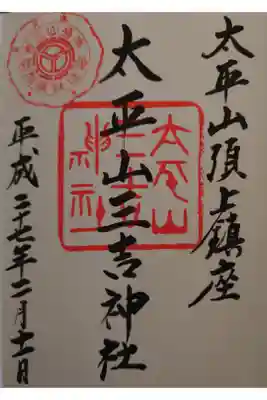 太平山頂上鎮座
太平山三吉神社
平成二十七年二月十一日